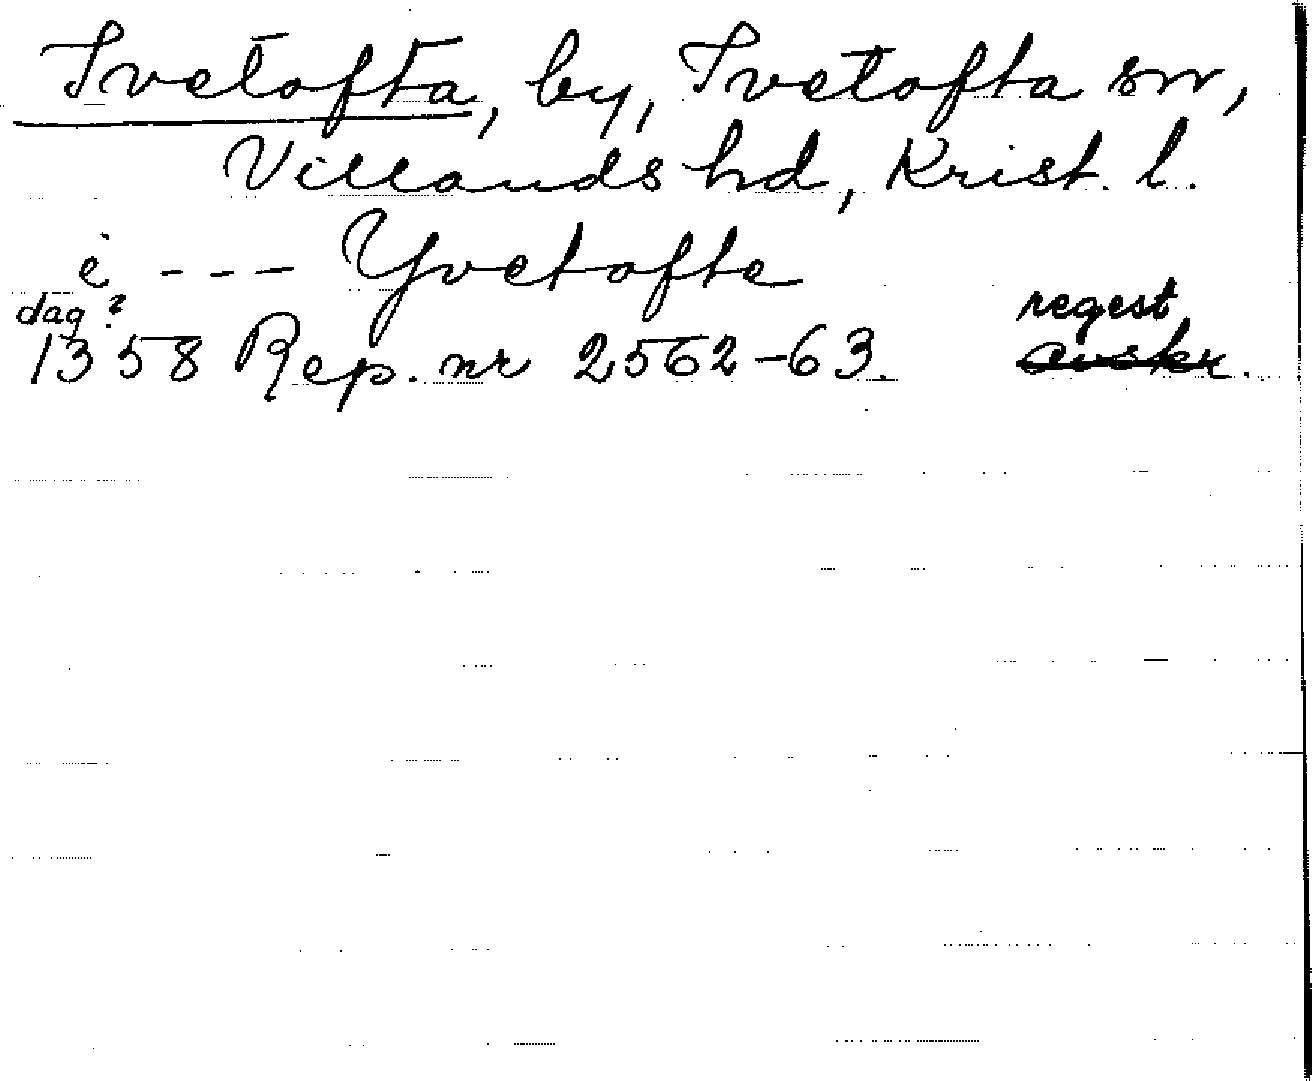 Ivetofta, by, Ivetofta sn,
Villands hd, Krist. l.
i --- Yvetofte
dag? regest
1358 Rep. nr 2562-63. avskr.